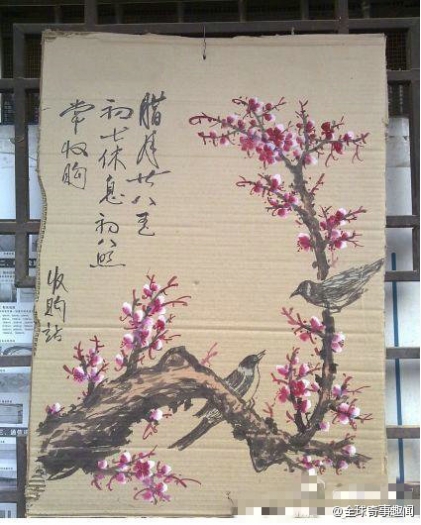 腊月廿八至
初七休息初八照
常收购
收购站
@全球奇事趣闻